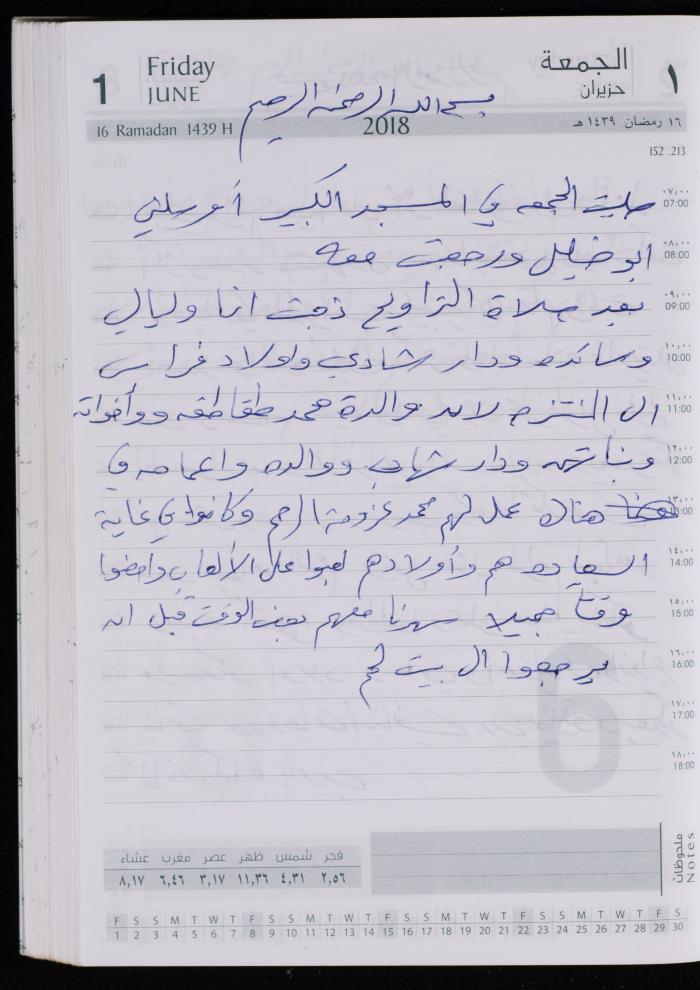 1 Friday JUNE الجمعة حزيران ١
بسم الله الرحمن الرحيم
16 Ramadan 1439 H 2018 ١٦ رمضان ١٤٣٩ هـ
152 .213
صليت الجمعه في المسجد الكبير أ
ابو خليل ورجعت معه
بعد صلاة التراويح ذهبت انا وليال
وسائده ودار شادي واولاد فراس
ال المنتزه لان والدة محمد طقاطقه وأخواته
وبنا ودار شهاب ووالده واعمامه في
هناك عمل لهم محمد عزومة وكانوا في غاية
السعاده هم وأولادهم لعبوا على الألعاب وامضوا
وقتاً جميلا سهرنا معهم بعض الوقت قبل ان
يرجعوا ال بيت لحم
٠٧،٠٠ 07:00
٠٨،٠٠ 08:00
٠٩،٠٠ 09:00
١٠،٠٠ 10:00
١١،٠٠ 11:00
١٢،٠٠ 12:00
١٣،٠٠ 13:00
١٤،٠٠ 14:00
١٥،٠٠ 15:00
١٦،٠٠ 16:00
١٧،٠٠ 17:00
١٨،٠٠ 18:00
6
ملحوظات Notes
فجر شمس ظهر عصر مغرب عشاء
٢,٥٦ ٤,٣١ ١١,٣٦ ٣,١٧ ٦,٤٦ ٨,١٧
F S S M T W T F S S M T W T F S S M T W T F S S M T W T F S
1 2 3 4 5 6 7 8 9 10 11 12 13 14 15 16 17 18 19 20 21 22 23 24 25 26 27 28 29 30